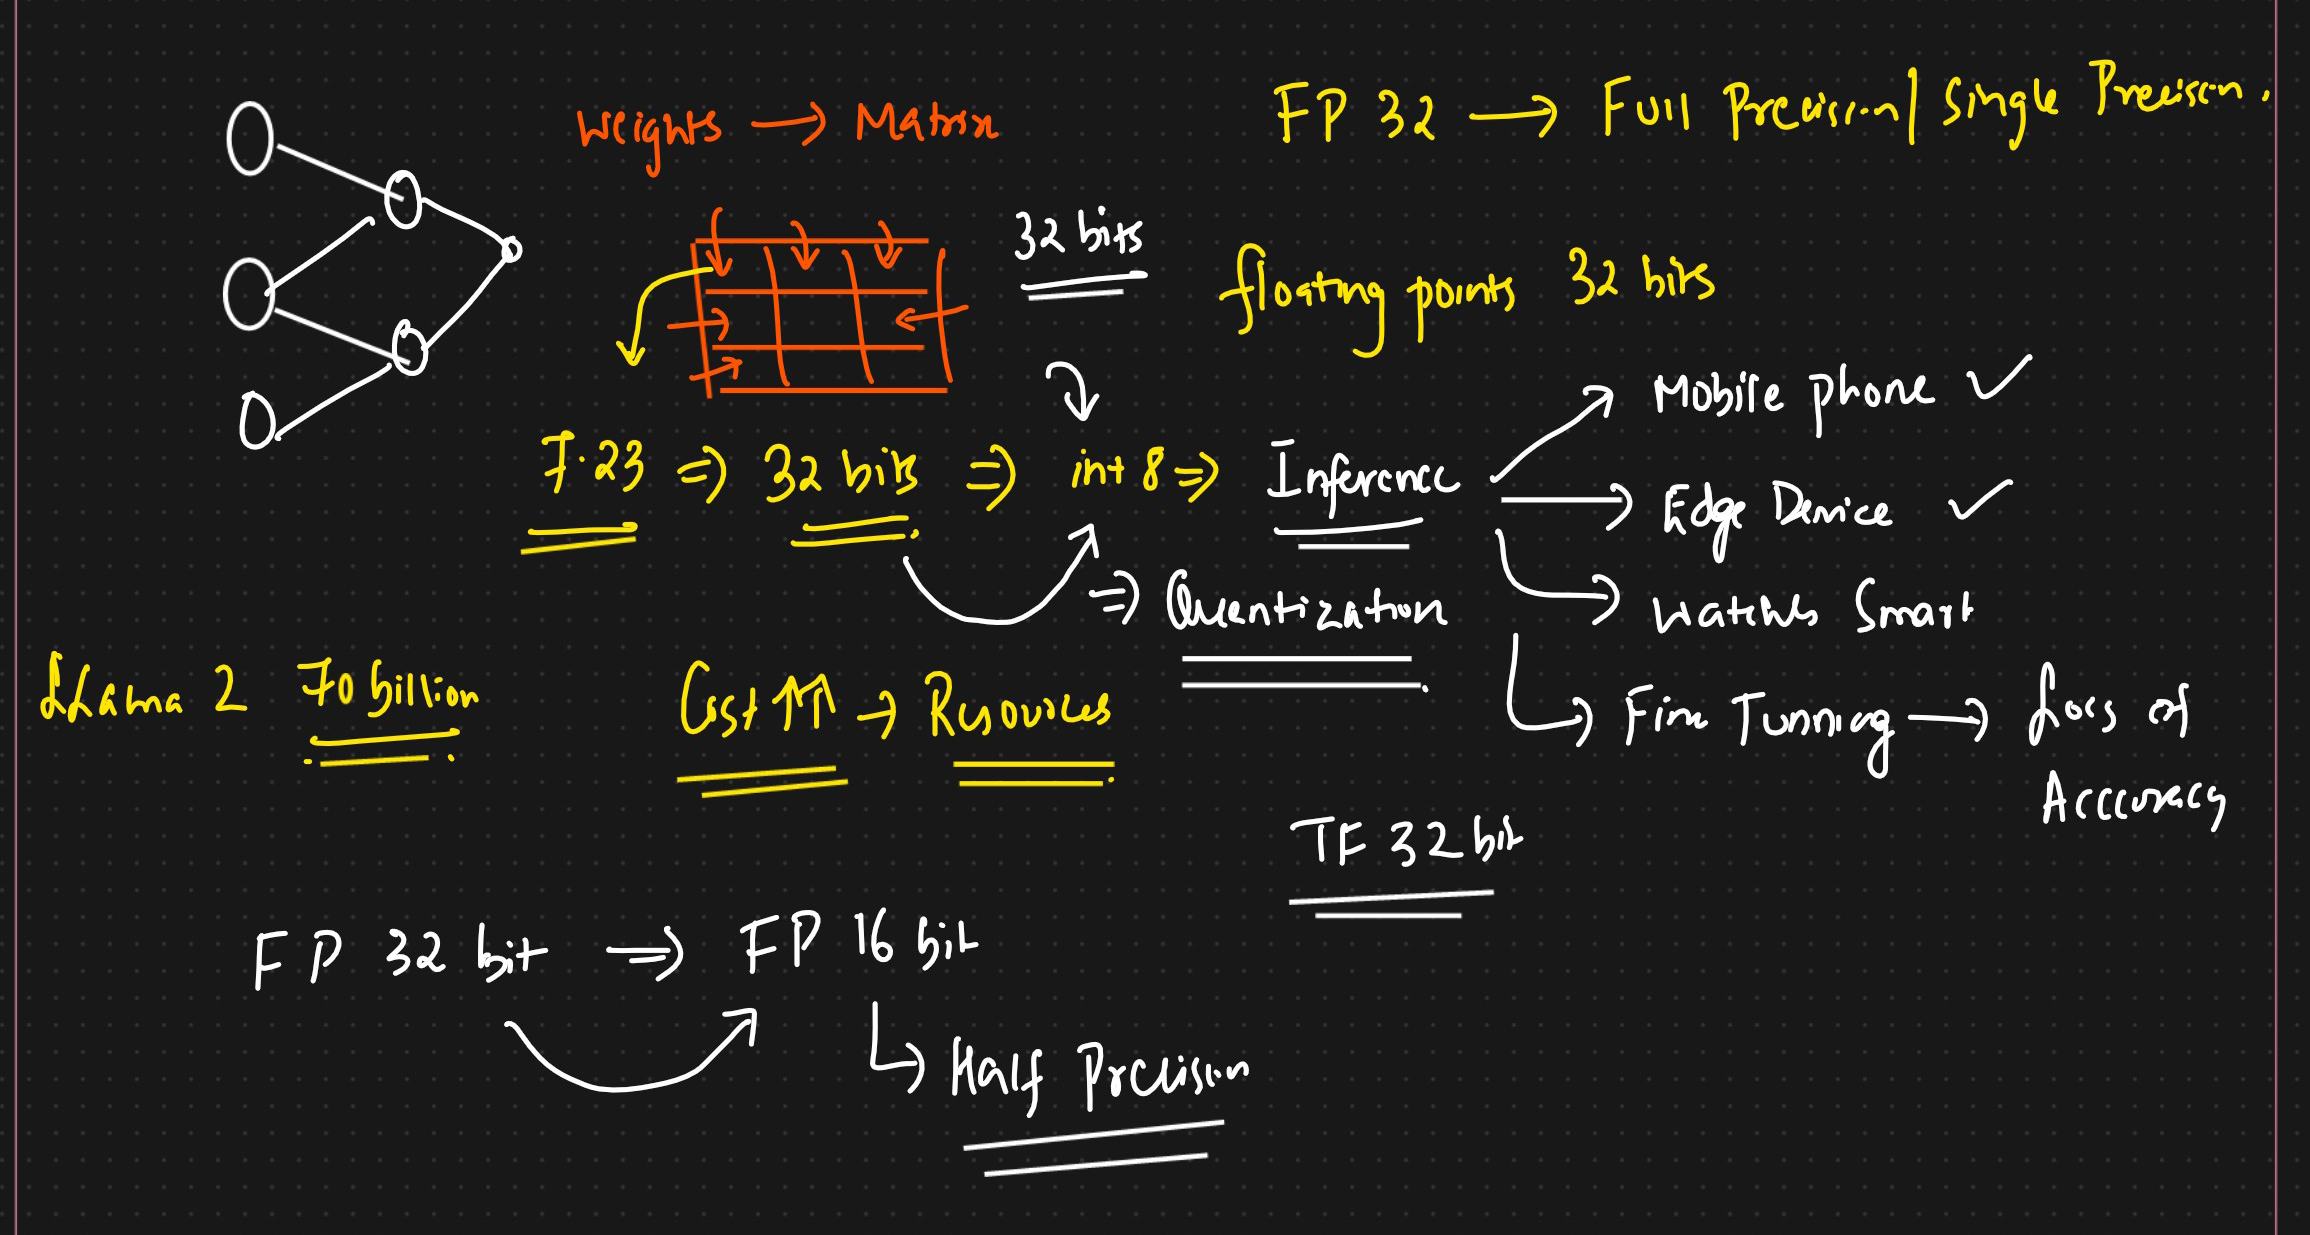 Weights → Matrix
FP 32 → Full Precision / Single Precision.
32 bits
floating points 32 bits
7.23 ⇒ 32 bits ⇒ int 8 ⇒ Inference
→ Mobile phone ✓
→ Edge Device ✓
→ Watches Smart
⇒ Quantization
→ Fine Tunning → Loss of
Acccuracy
LLama 2 70 billion
Cost ↑↑ → Resources
TF 32 bit
FP 32 bit ⇒ FP 16 bit
→ Half Precision